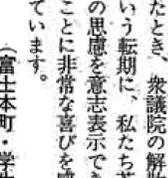 たとき、衆議院の解散
いう転期に、私たち若
の思慮を意志表示でき
ことに非常な喜びを感
ています。
（富士本町・学生